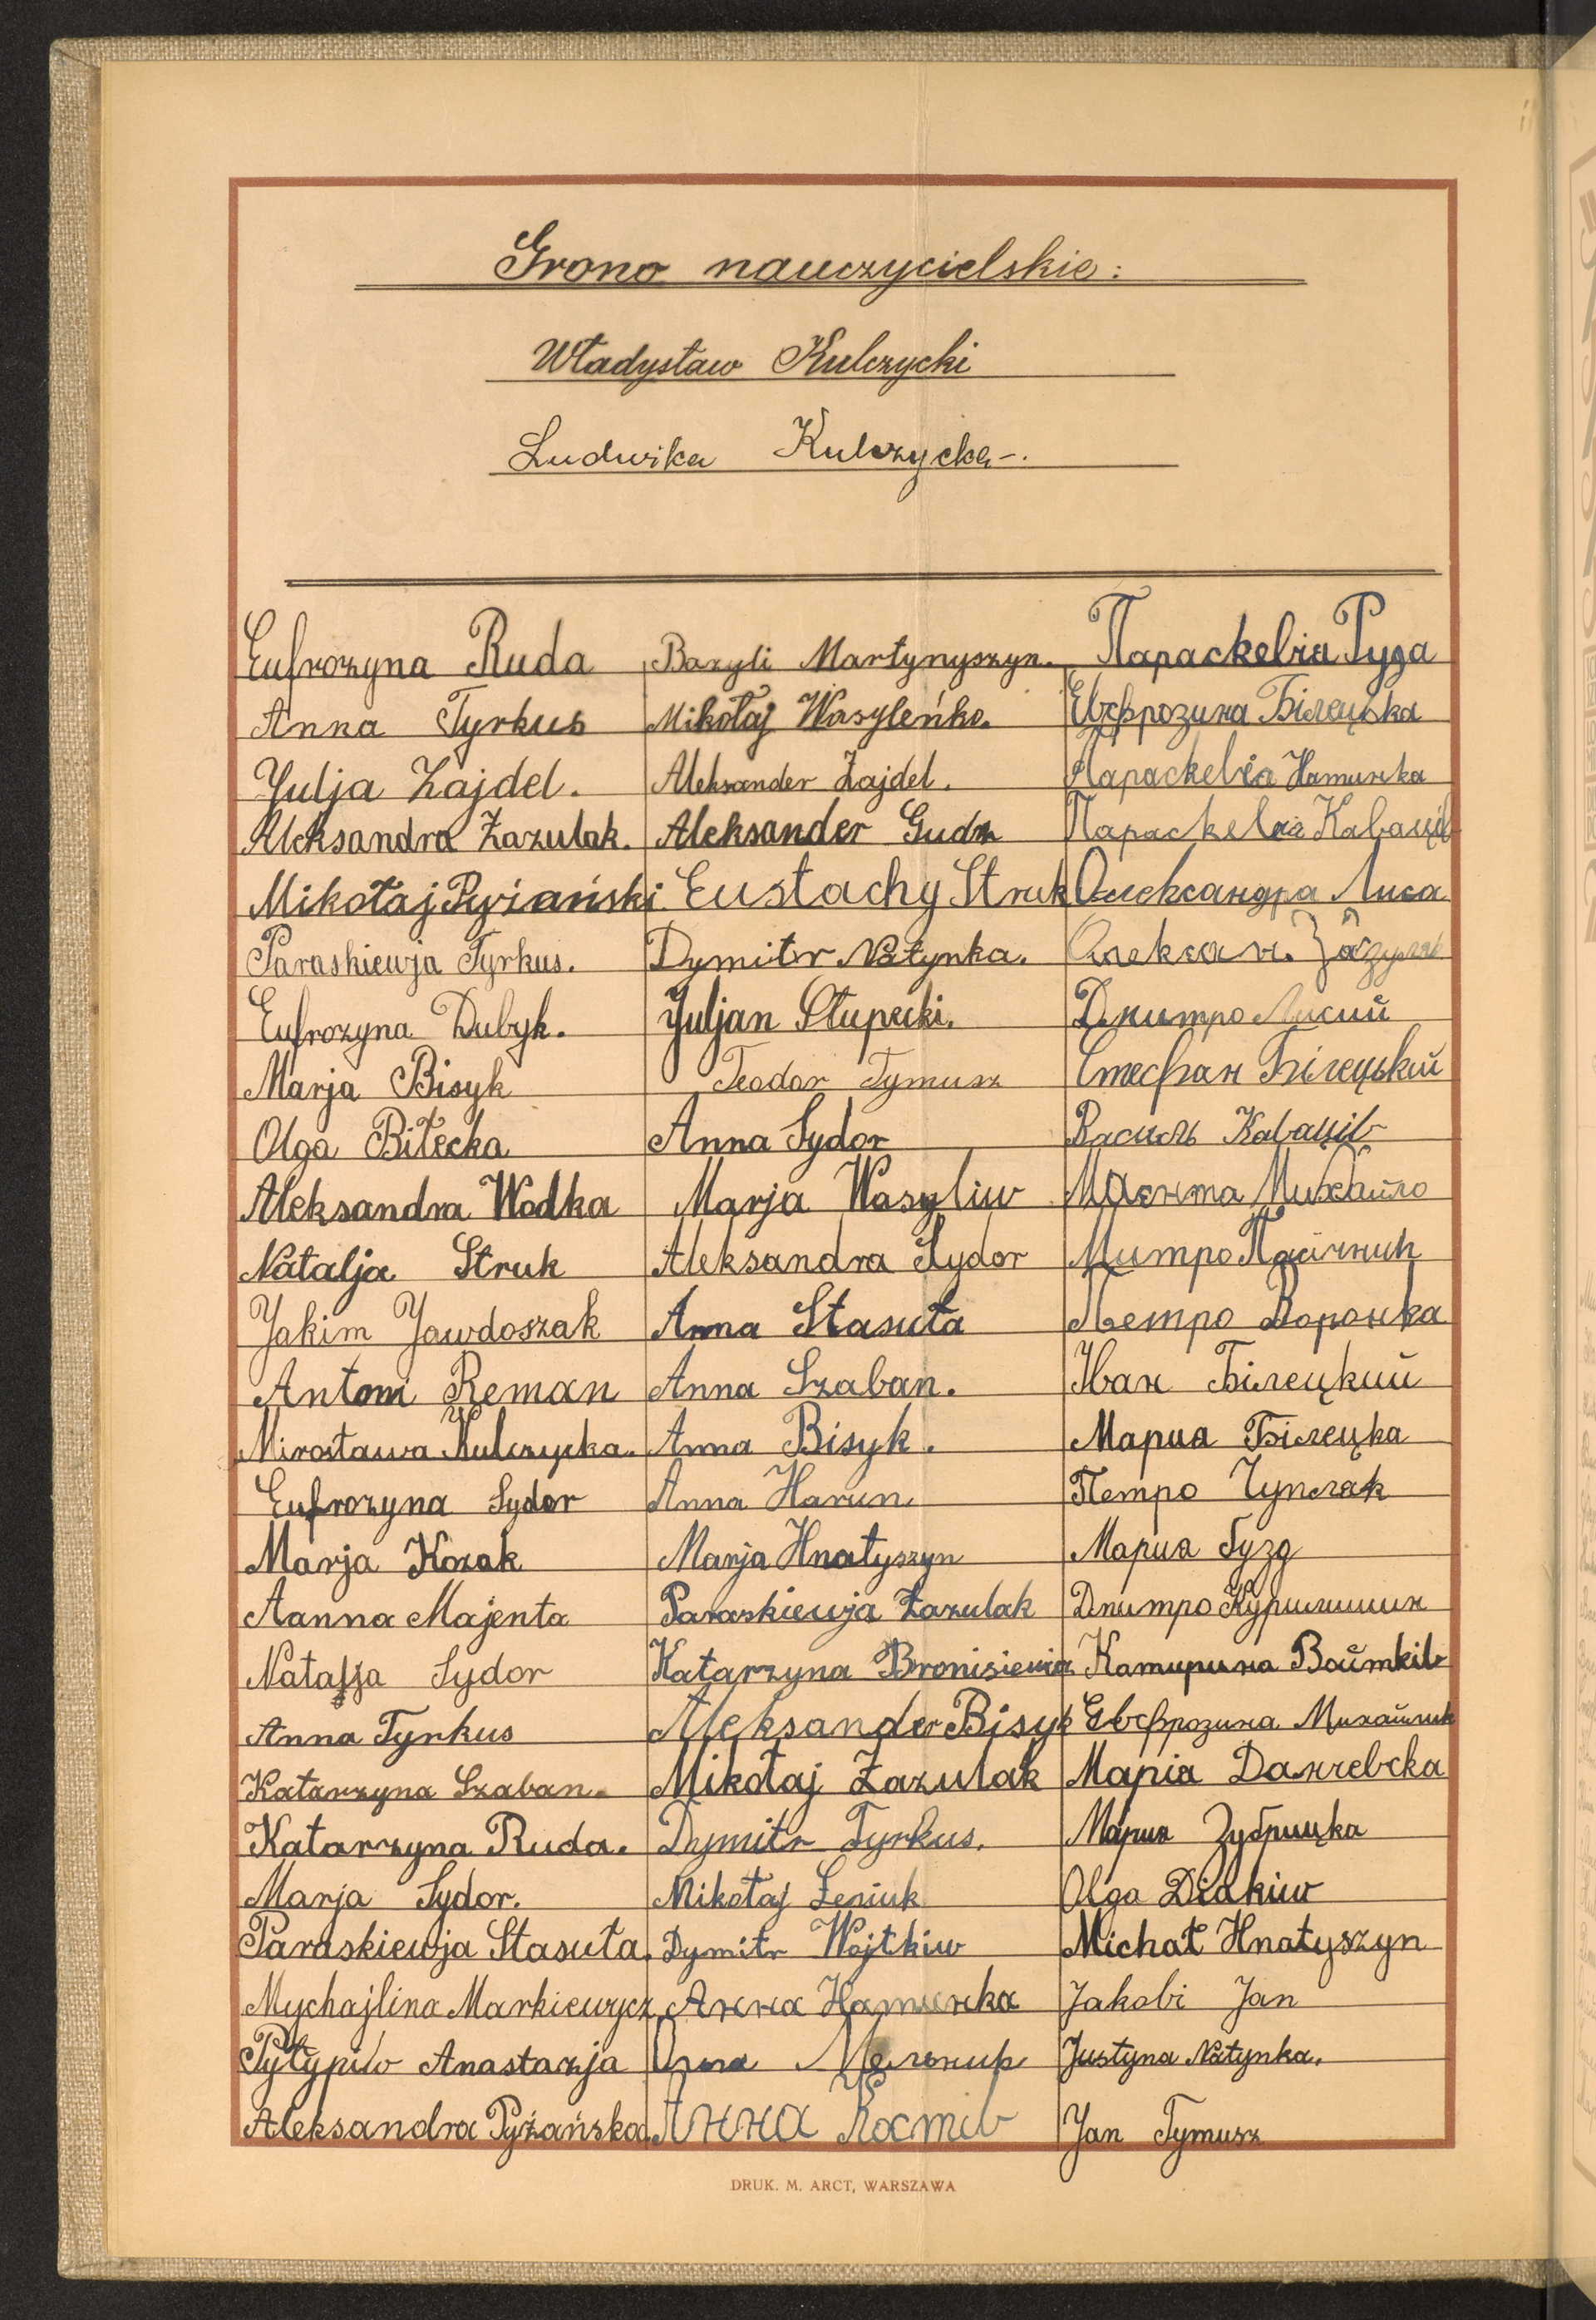 Grono nauczycielskie:
Władysław Kulczycki
Ludwika Kulczycka-.
Eufrozyna Ruda Bazyli Martynyszyn. Параскевіа Руда
Anna Tyrkus Mikołaj Wasyleńko. Евфрозина Білецька
Yulja Zajdel. Aleksander Zajdel. Параскевіа Натинка
Aleksandra Zazulak. Aleksander Gudz Параскевіа Каваців
Mikołaj Pyżański Eustachy Struk Олександра Лиса
Paraskiewja Tyrkus. Dymitr Natynka. Олексан. Зазуляк
Eufrozyna Dubyk. Juljan Słupecki. Дмитро Лисий
Marja Bisyk Teodor Tymusz Стефан Білецький
Olga Biłecka Anna Sydor Василь Каваців
Aleksandra Wodka Marja Wasyliw Маєнта Михайло
Natalja Struk Aleksandra Sydor Митро
Jakim Jawdoszak Anna Stasuta Петро Воронка
Antoni Reman Anna Szaban. Іван Білецкий
Mirosława Kulczycka. Anna Bisyk. Мариа Білецка
Eufrozyna Sydor Anna Harun. Петро Чупляк
Marja Kozak Marja Hnatyszyn Мариа Гузд
Aanna Majenta Paraskiewja Zazulak Дмитро
Natalja Sydor Katarzyna Катирина Войтків
Anna Tyrkus Aleksander Bisyk Евфрозина
Katarzyna Szaban. Mikołaj Zazulak Маріа Данчевска
Katarzyna Ruda. Dymitr Tyrkus. Мариа Зубрицка
Marja Sydor. Mikołaj Łesiuk Olga Diakiw
Paraskiewja Stasuta. Dymitr Wojtkiw Michał Hnatyszyn
Mychajlina Markiewycz Анна Натинка Jakobi Jan
Pyłypiw Anastazja Мельник Justyna Natynka.
Aleksandra Pyżańska. Анна Костів Jan Tymusz
DRUK. M. ARCT, WARSZAWA